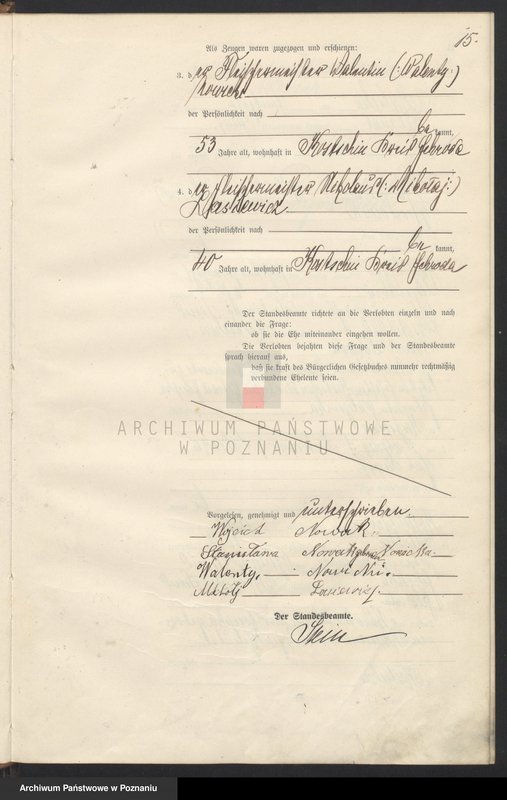 15.
Als Zeugen waren zugezogen und erschienen:
3. der Fleischermeister Valentin (: Walenty :)
der Persönlichkeit nach
bekannt,
53 Jahre alt, wohnhaft in Kostschin Kreis Schroda
4. der Fleischermeister Nikolaus (: Mikolaj :)
der Persönlichkeit nach
bekannt,
40 Jahre alt, wohnhaft in Kostschin Kreis Schroda
Der Standesbeamte richtete an die Verlobten einzeln und nach
einander die Frage:
ob sie die Ehe miteinander eingehen wollen.
Die Verlobten bejahten diese Frage und der Standesbeamte
sprach hierauf aus,
daß sie kraft des Bürgerlichen Gesetzbuches nunmehr rechtmäßig
verbundene Eheleute seien.
ARCHIWUM PAŃSTWOWE
W POZNANIU
Vorgelesen, genehmigt und unterschrieben.
Wojciech Nowak.
Stanisława Nowak
Walenty.
Der Standesbeamte.
Archiwum Państwowe w Poznaniu